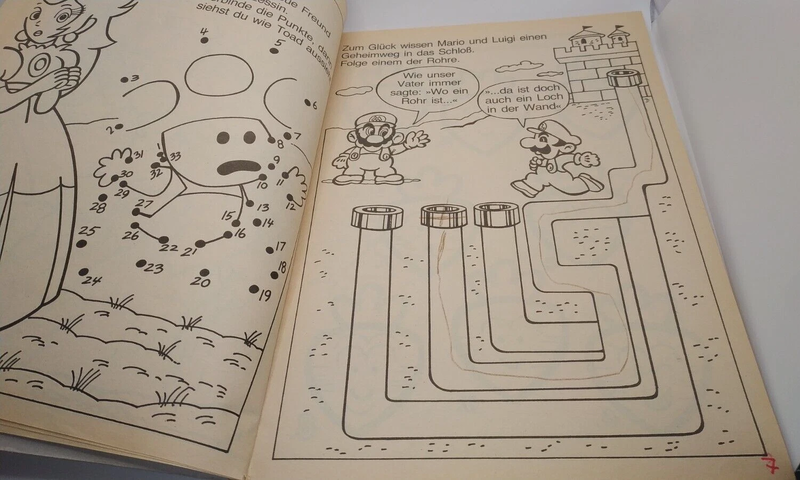 Freund
essin.
binde die Punkte, dann
siehst du wie Toad aussieht.
4
5
3
6
2
7
8
1
31
33
9
32
10
11
30
29
12
28
27
13
15
14
26
16
25
22
21
17
23
18
24
20
19
Zum Glück wissen Mario und Luigi einen
Geheimweg in das Schloß.
Folge einem der Rohre.
Wie unser
Vater immer
sagte: »Wo ein
Rohr ist...«
»...da ist doch
auch ein Loch
in der Wand«
7